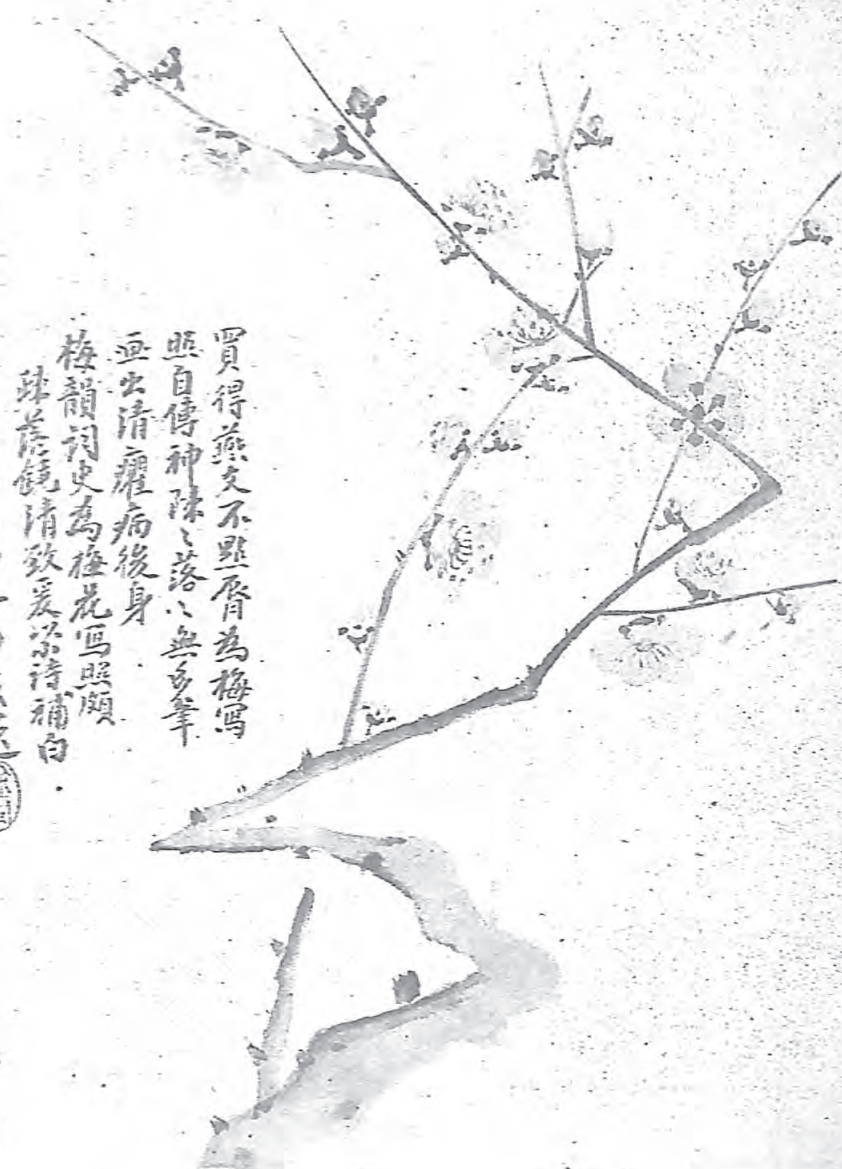 買得燕支不點脣為梅寫
照自傳神疎〻落〻無多筆
画出清癯病後身
梅韻詞史為梅花寫照頗
疎落饒清致爰綴詩補白